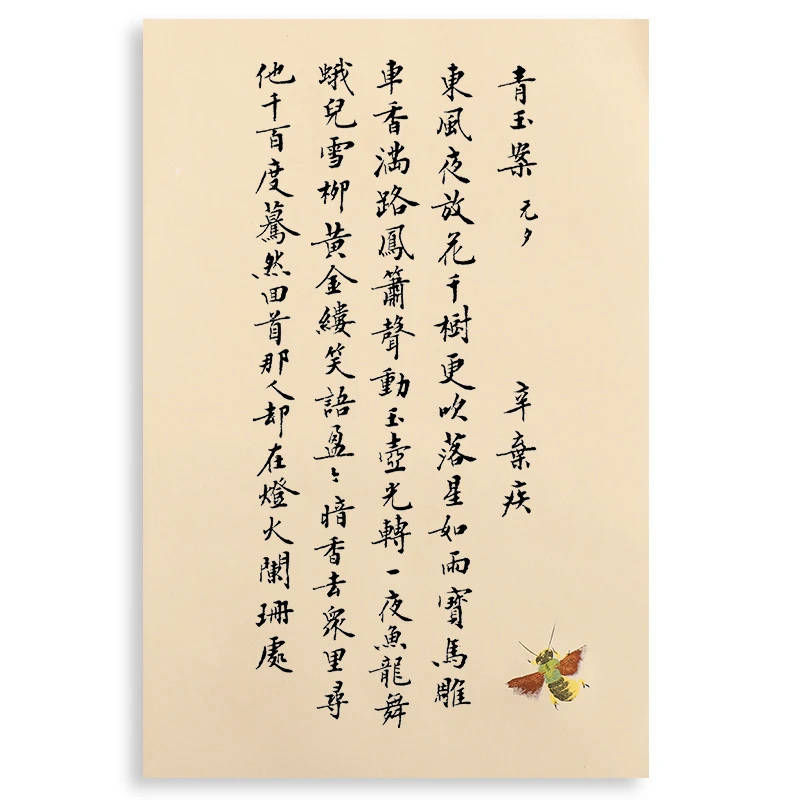 青玉案 元夕 辛棄疾
東風夜放花千樹更吹落星如雨寶馬雕
車香滿路鳳簫聲動玉壺光轉一夜魚龍舞
蛾兒雪柳黃金縷笑語盈〻暗香去眾里尋
他千百度驀然回首那人却在燈火闌珊處